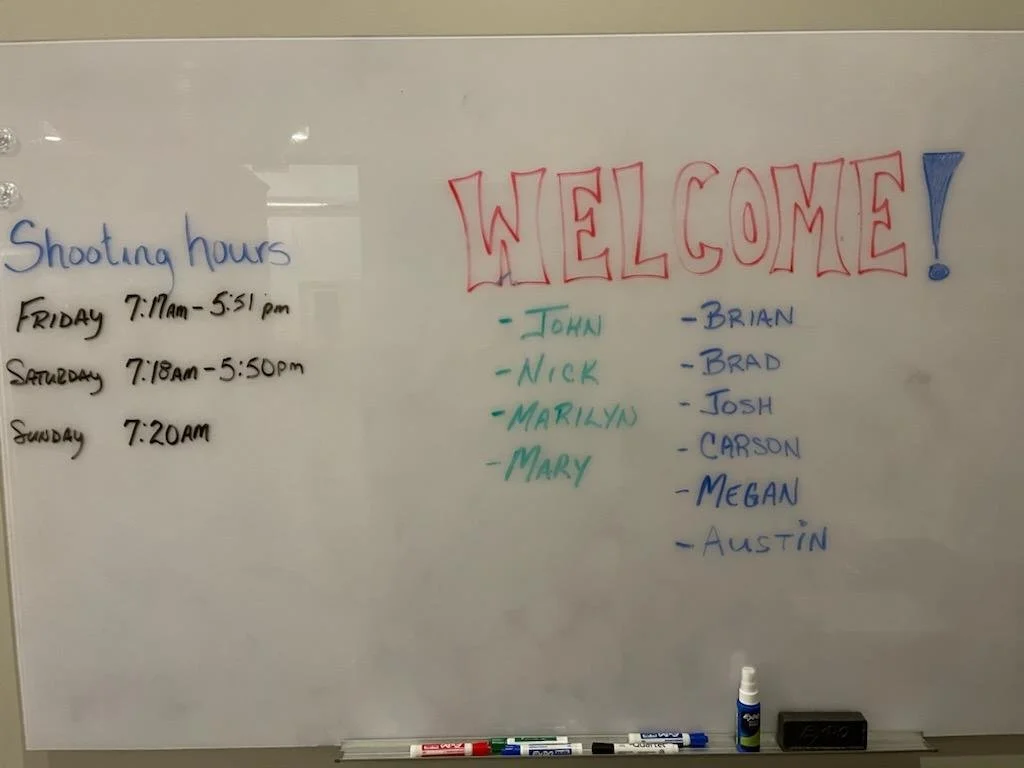 Shooting hours
FRIDAY 7:17AM - 5:51 pm
SATURDAY 7:18AM - 5:50pm
SUNDAY 7:20AM
WELCOME!
- JOHN
- NICK
- MARILYN
- MARY
- BRIAN
- BRAD
- JOSH
- CARSON
- MEGAN
- AUSTIN
EXPO
Quartet